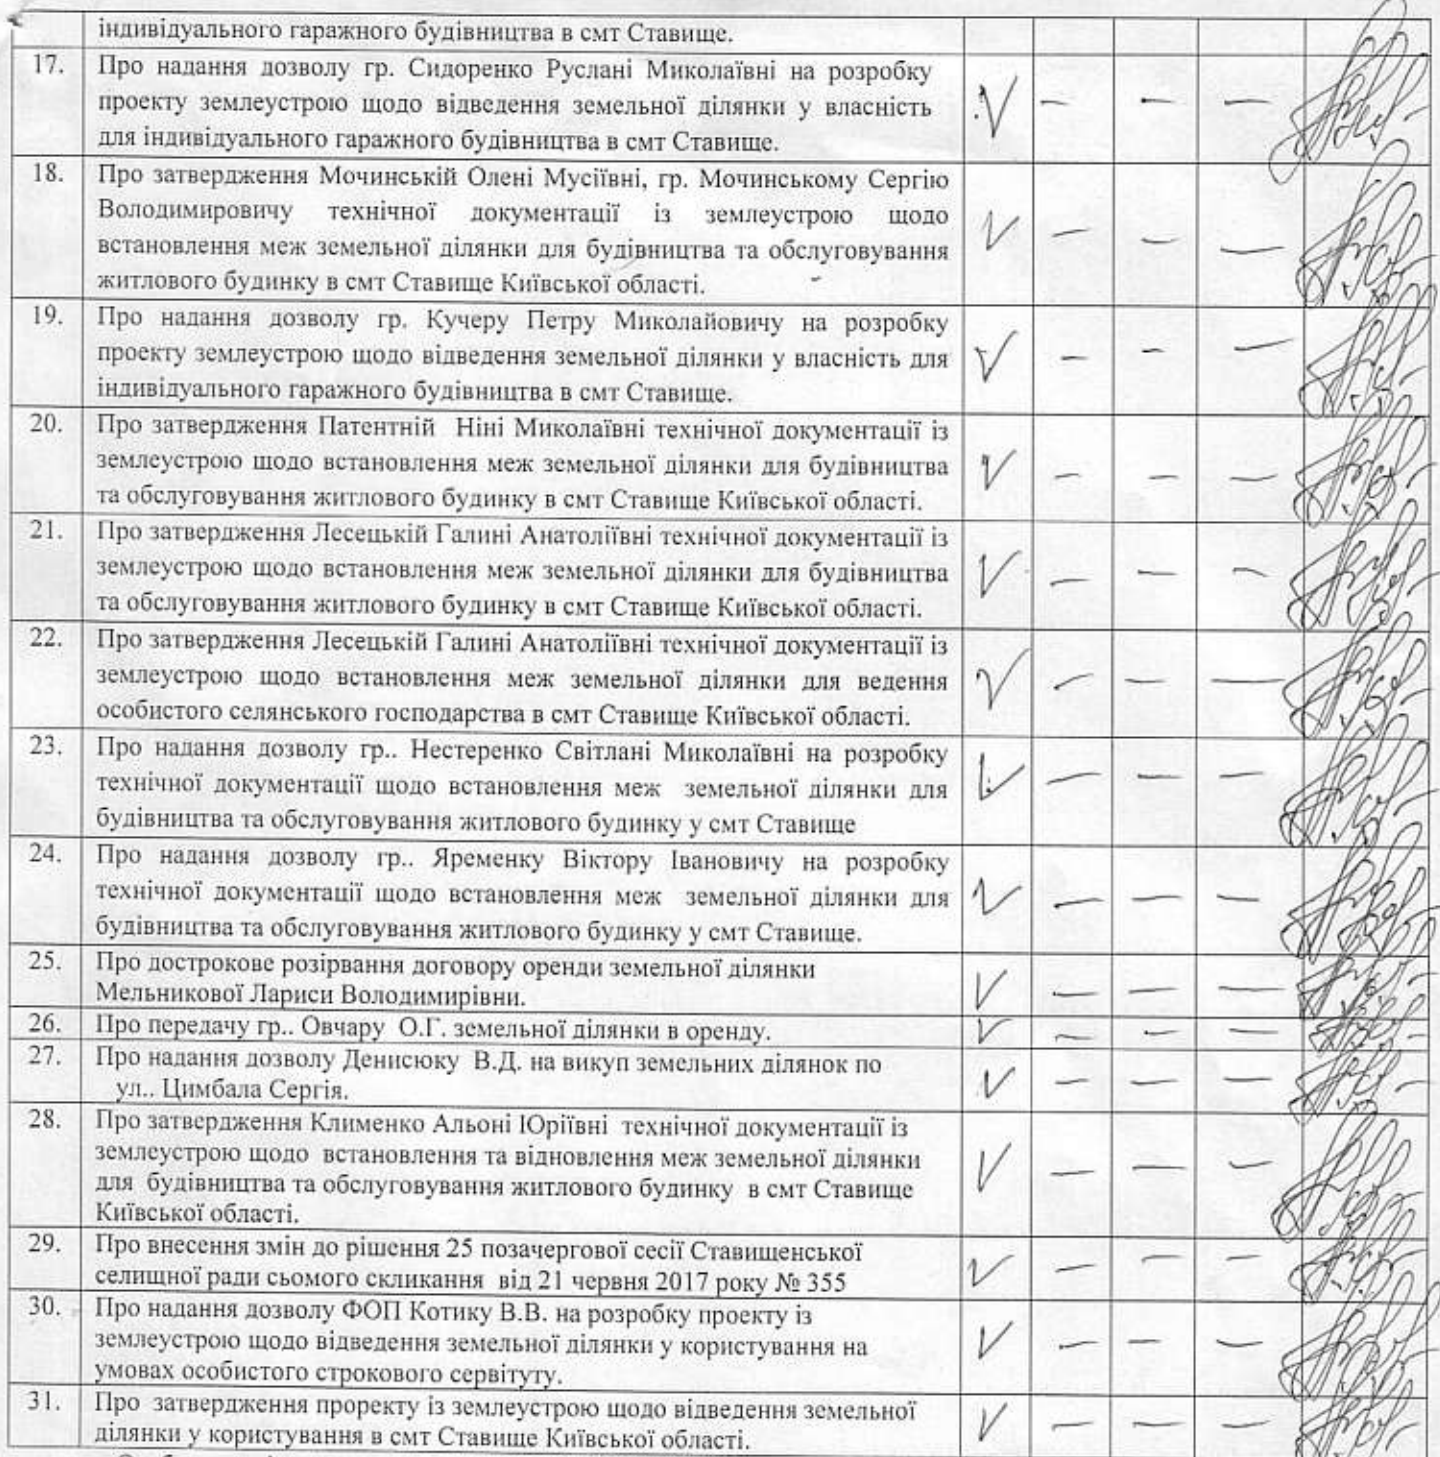 індивідуального гаражного будівництва в смт Ставище.
17. Про надання дозволу гр. Сидоренко Руслані Миколаївні на розробку
проекту землеустрою щодо відведення земельної ділянки у власність
для індивідуального гаражного будівництва в смт Ставище.
18. Про затвердження Мочинській Олені Мусіївні, гр. Мочинському Сергію
Володимировичу технічної документації із землеустрою щодо
встановлення меж земельної ділянки для будівництва та обслуговування
житлового будинку в смт Ставище Київської області.
19. Про надання дозволу гр. Кучеру Петру Миколайовичу на розробку
проекту землеустрою щодо відведення земельної ділянки у власність для
індивідуального гаражного будівництва в смт Ставище.
20. Про затвердження Патентній Ніні Миколаївні технічної документації із
землеустрою щодо встановлення меж земельної ділянки для будівництва
та обслуговування житлового будинку в смт Ставище Київської області.
21. Про затвердження Лесецькій Галині Анатоліївні технічної документації із
землеустрою щодо встановлення меж земельної ділянки для будівництва
та обслуговування житлового будинку в смт Ставище Київської області.
22. Про затвердження Лесецькій Галині Анатоліївні технічної документації із
землеустрою щодо встановлення меж земельної ділянки для ведення
особистого селянського господарства в смт Ставище Київської області.
23. Про надання дозволу гр.. Нестеренко Світлані Миколаївні на розробку
технічної документації щодо встановлення меж земельної ділянки для
будівництва та обслуговування житлового будинку у смт Ставище
24. Про надання дозволу гр.. Яременку Віктору Івановичу на розробку
технічної документації щодо встановлення меж земельної ділянки для
будівництва та обслуговування житлового будинку у смт Ставище.
25. Про дострокове розірвання договору оренди земельної ділянки
Мельникової Лариси Володимирівни.
26. Про передачу гр.. Овчару О.Г. земельної ділянки в оренду.
27. Про надання дозволу Денисюку В.Д. на викуп земельних ділянок по
ул.. Цимбала Сергія.
28. Про затвердження Клименко Альоні Юріївні технічної документації із
землеустрою щодо встановлення та відновлення меж земельної ділянки
для будівництва та обслуговування житлового будинку в смт Ставище
Київської області.
29. Про внесення змін до рішення 25 позачергової сесії Ставищенської
селищної ради сьомого скликання від 21 червня 2017 року № 355
30. Про надання дозволу ФОП Котику В.В. на розробку проекту із
землеустрою щодо відведення земельної ділянки у користування на
умовах особистого строкового сервітуту.
31. Про затвердження проректу із землеустрою щодо відведення земельної
ділянки у користування в смт Ставище Київської області.